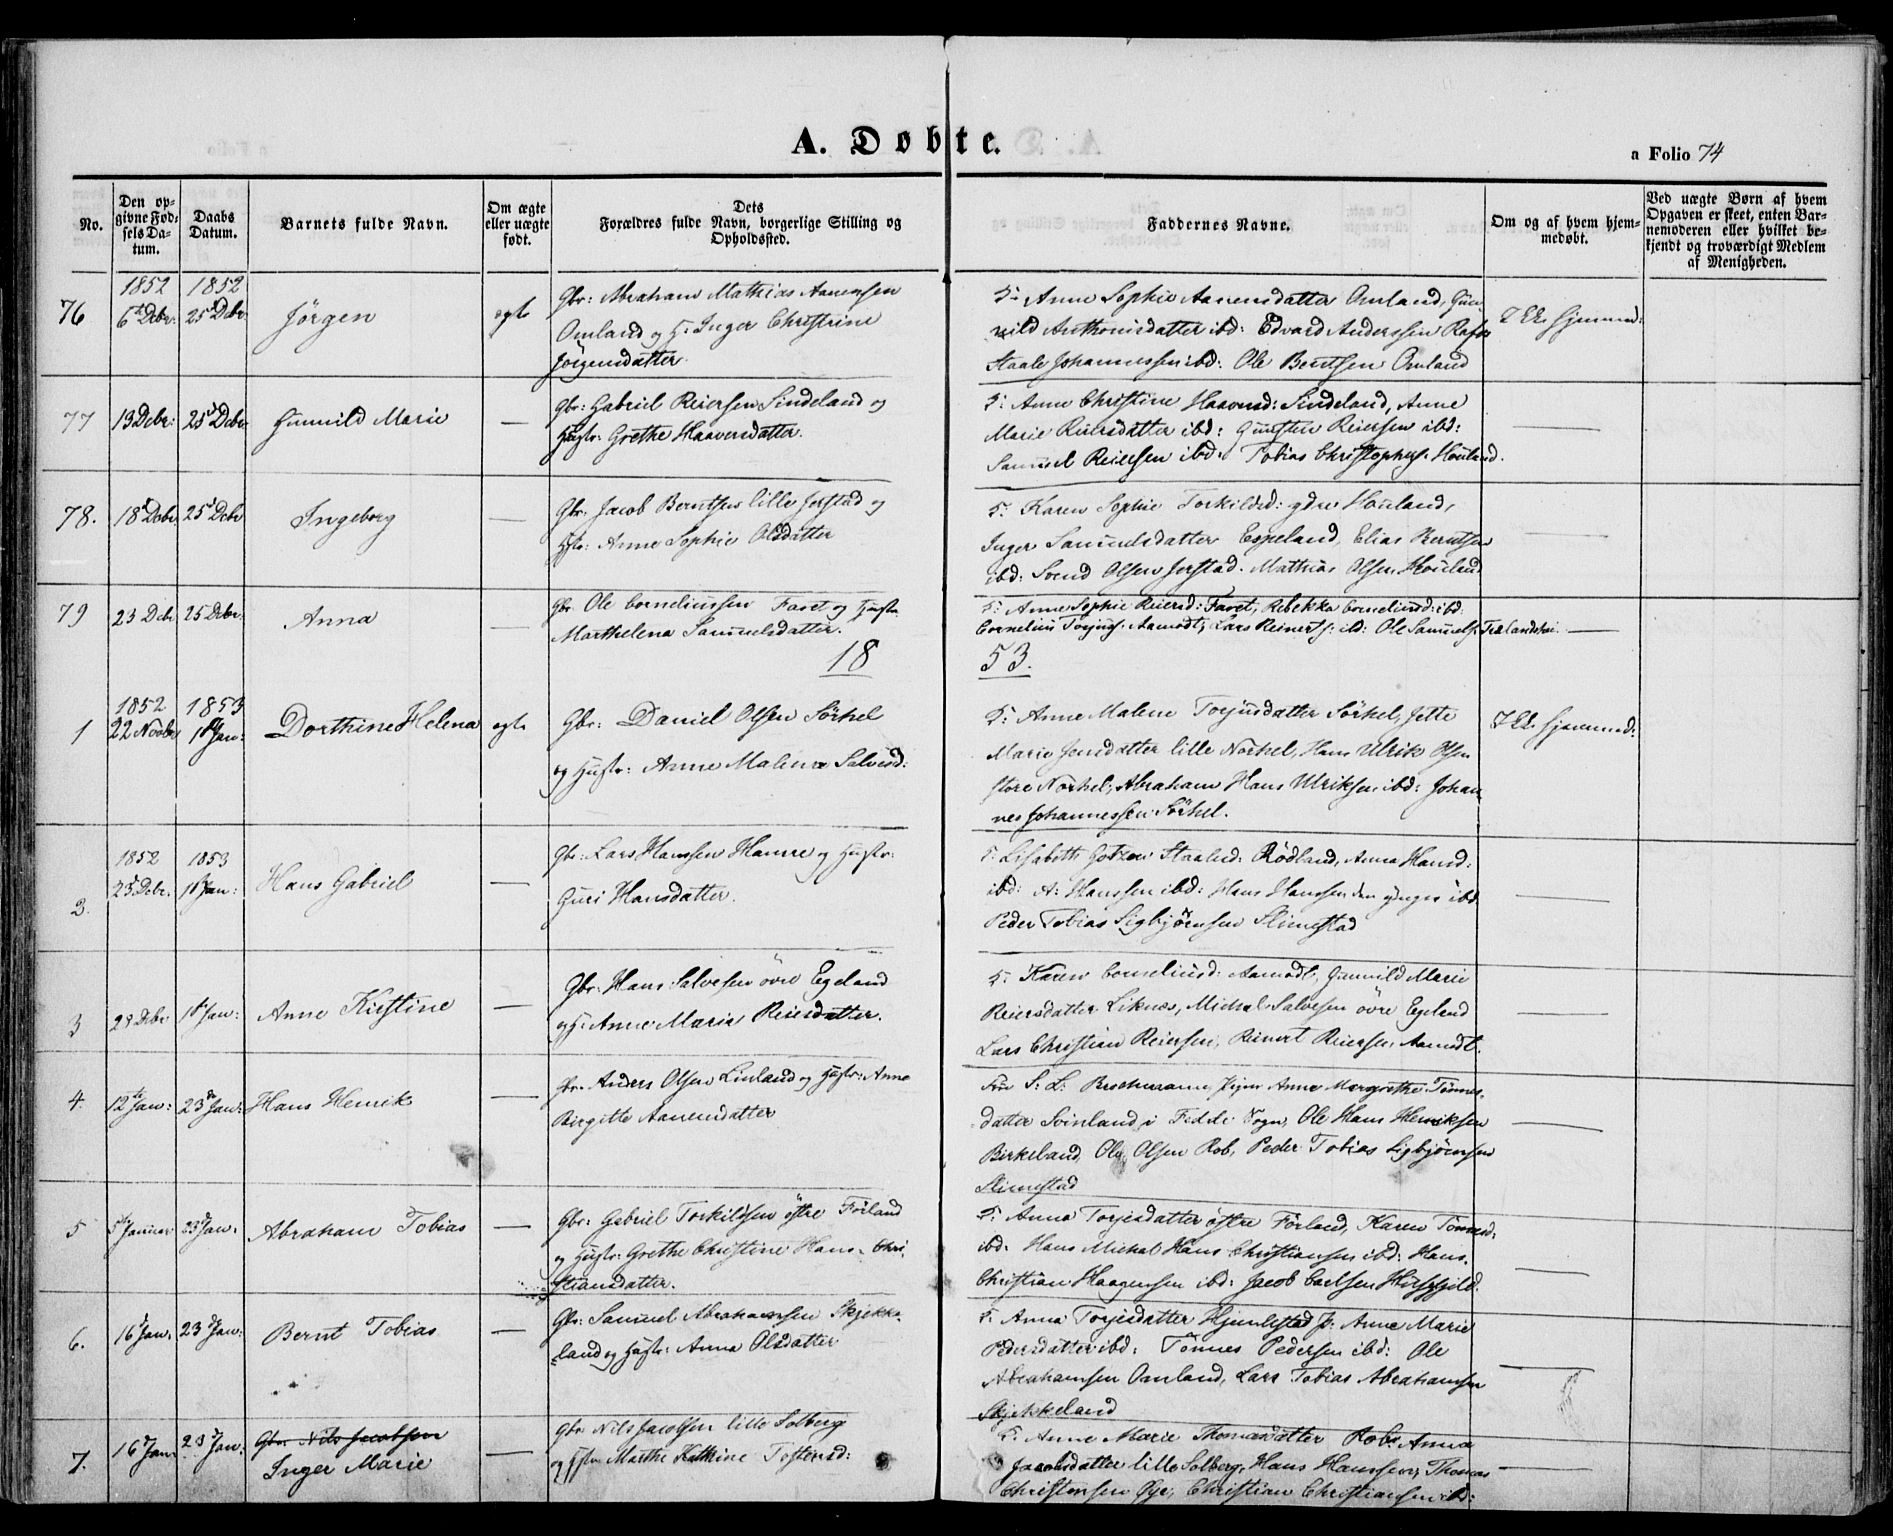 A. Døbte.
a Folio 74
No.
Den op-
givne Fød-
sels Da-
tum.
Daabs
Datum.
Barnets fulde Navn.
Om ægte
eller uægte
født.
Dets
Forældres fulde Navn, borgerlige Stilling og
Opholdssted.
Faddernes Navne.
Om og af hvem hjem-
medøbt.
Ved uægte Børn af hvem
Opgaven er skeet, enten Bar-
nemoderen eller hvilket be-
kjendt og troværdigt Medlem
af Menigheden.
1852 1852
76 6 Debr: 25 Debr Jörgen ægte
Gbr: Abraham Mathias Aanensen
Omland og H: Inger Christine
Jörgensdatter.
F: Anne Sophie Aanensdatter Omland, Gun-
vild Anthonisdatter ibd: Edvard Anderssen
Staale Johannessen ibd: Ole Berntsen Omland
Ikke hjemmed:
77 13 Debr: 25 Debr Gunvild Marie —
Gbr: Gabriel Reiersen Sindeland og
Hustr: Grethe Haaversdatter.
F: Anne Christine Haaversd: Sindeland, Anne
Marie Reiersdatter ibd: Gunsten Reiersen ibd:
Samuel Reiersen ibd: Tobias Christophers: Houland.
—
78. 18 Debr 25 Debr Ingeborg —
Gbr: Jacob Berntsen lille Jerstad og
Hstr: Anne Sophie Olsdatter
F: Karen Sophie Torkildsd: ydre Houland,
Inger Samuelsdatter Espeland, Elias Berntsen
ibd: Svend Olsen Jerstad. Mathias Olsen Houland
—
79 23 Debr 25 Debr: Anna —
Gbr. Ole Corneliussen Faret og Hustr.
Marthelena Samuelsdatter.
F: Anne Sophie Reiersd: Faret, Rebekka Corneliusd: ibd:
Cornelius Torjus: Aamodt, Lars Reinerts: ibd: Ole Samuels:
—
18
53.
1852 1853
1 22 Novbr 1 Jan: Dorthine Helena ægte
Gbr: Daniel Olsen Sörhel
og Hustr: Anne Malene Salvesd:
F: Anne Malene Torjusdatter Sörhel, Jette
Marie Jensdatter lille Norhel, Hans Ulrik Olsen
store Norhel, Abraham Hans Ulriksen ibd: Johan-
nes Johannessen Sörhel.
Ikke hjemmed:
1852 1853
2. 25 Debr: 1 Jan: Hans Gabriel —
Gbr: Lars Hanssen Hamre og Hustr:
Guri Hansdatter.
F: Lisabeth Staalesd: Rödland, Anna Hansd:
ibd: A: Hanssen ibd: Hans Hanssen den yngre ibd
Peder Tobias Sigbjörnsen Slimestad
—
3 28 Debr 1 Jan: Anne Kirstine —
Gbr: Hans Salvesen övre Egeland
og H: Anne Marie Reiersdatter.
F: Karen Corneliusd: Aamodt, Gunvild Marie
Reiersdatter Liknes, Michal Salvesen övre Egeland
Lars Christian Reiersen, Reinert Reiersen Aamodt.
—
4. 12 Jan: 23 Jan: Hans Henrik —
Gbr. Anders Olsen Linland og Hustr: Anne
Birgitte Aanensdatter
Fru S: L: Brochmann, Anne Margrethe Tönnes-
datter Svinland i Fedde Sogn, Ole Hans Henriksen
Birkeland, Ole Olsen Rob, Peder Tobias Sigbjörnsen
Slimestad
—
5 5 Januar 23 Jan: Abraham Tobias —
Gbr: Gabriel Torkildsen östre Förland
og Hustr: Grethe Christine Hans-Chri-
stiansdatter.
F: Anna Torjesdatter östre Förland, Karen Tönnesd:
ibd: Hans Michal Hans Christiansen ibd: Hans
Christian Haagensen ibd: Jacob Carlsen
—
6. 16 Jan: 23 Jan: Bernt Tobias —
Gbr: Samuel Abrahamsen Skjekke-
land og Hustr: Anna Olsdatter
F: Anna Torjesdatter Hjemlestad, P: Anne Marie
Pedersdatter ibd: Tönnes Pedersen ibd: Ole
Abrahamsen Omland, Lars Tobias Abrahamsen
Skjekkeland
—
7. 16 Jan 23 Jan: Gbr: Nils Jacobsen
Inger Marie —
Gbr: Nils Jacobsen lille Solberg
og Hstr. Marthe Kathrine Tostensd:
F: Anne Marie Thomasdatter Rob, Anna
Jacobsdatter lille Solberg, Hans Hanssen, Thomas
Christensen Öye, Christian Christiansen ibd:
—